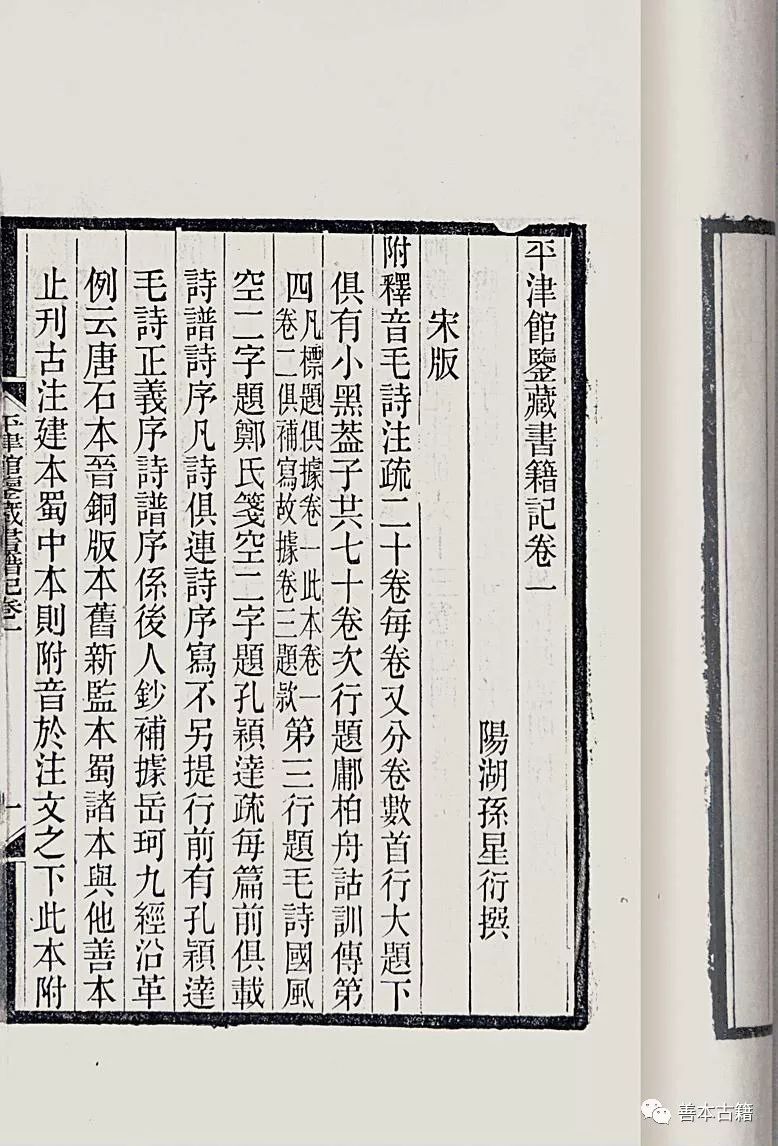 平津館鑒藏書籍記卷一
陽湖孫星衍撰
宋版
附釋音毛詩注疏二十卷每卷又分卷數首行大題下
俱有小黑蓋子共七十卷次行題鄘柏舟詁訓傳第
四凡標題俱據卷一此本卷一卷二俱補寫故據卷三題款第三行題毛詩國風
空二字題鄭氏箋空二字題孔穎達疏每篇前俱載
詩譜詩序凡詩俱連詩序寫不另提行前有孔穎達
毛詩正義序詩譜序係後人鈔補據岳珂九經沿革
例云唐石本晉銅版本舊新監本蜀諸本與他善本
止刊古注建本蜀中本則附音於注文之下此本附
平津館鑒藏書籍記卷一
一
善本古籍